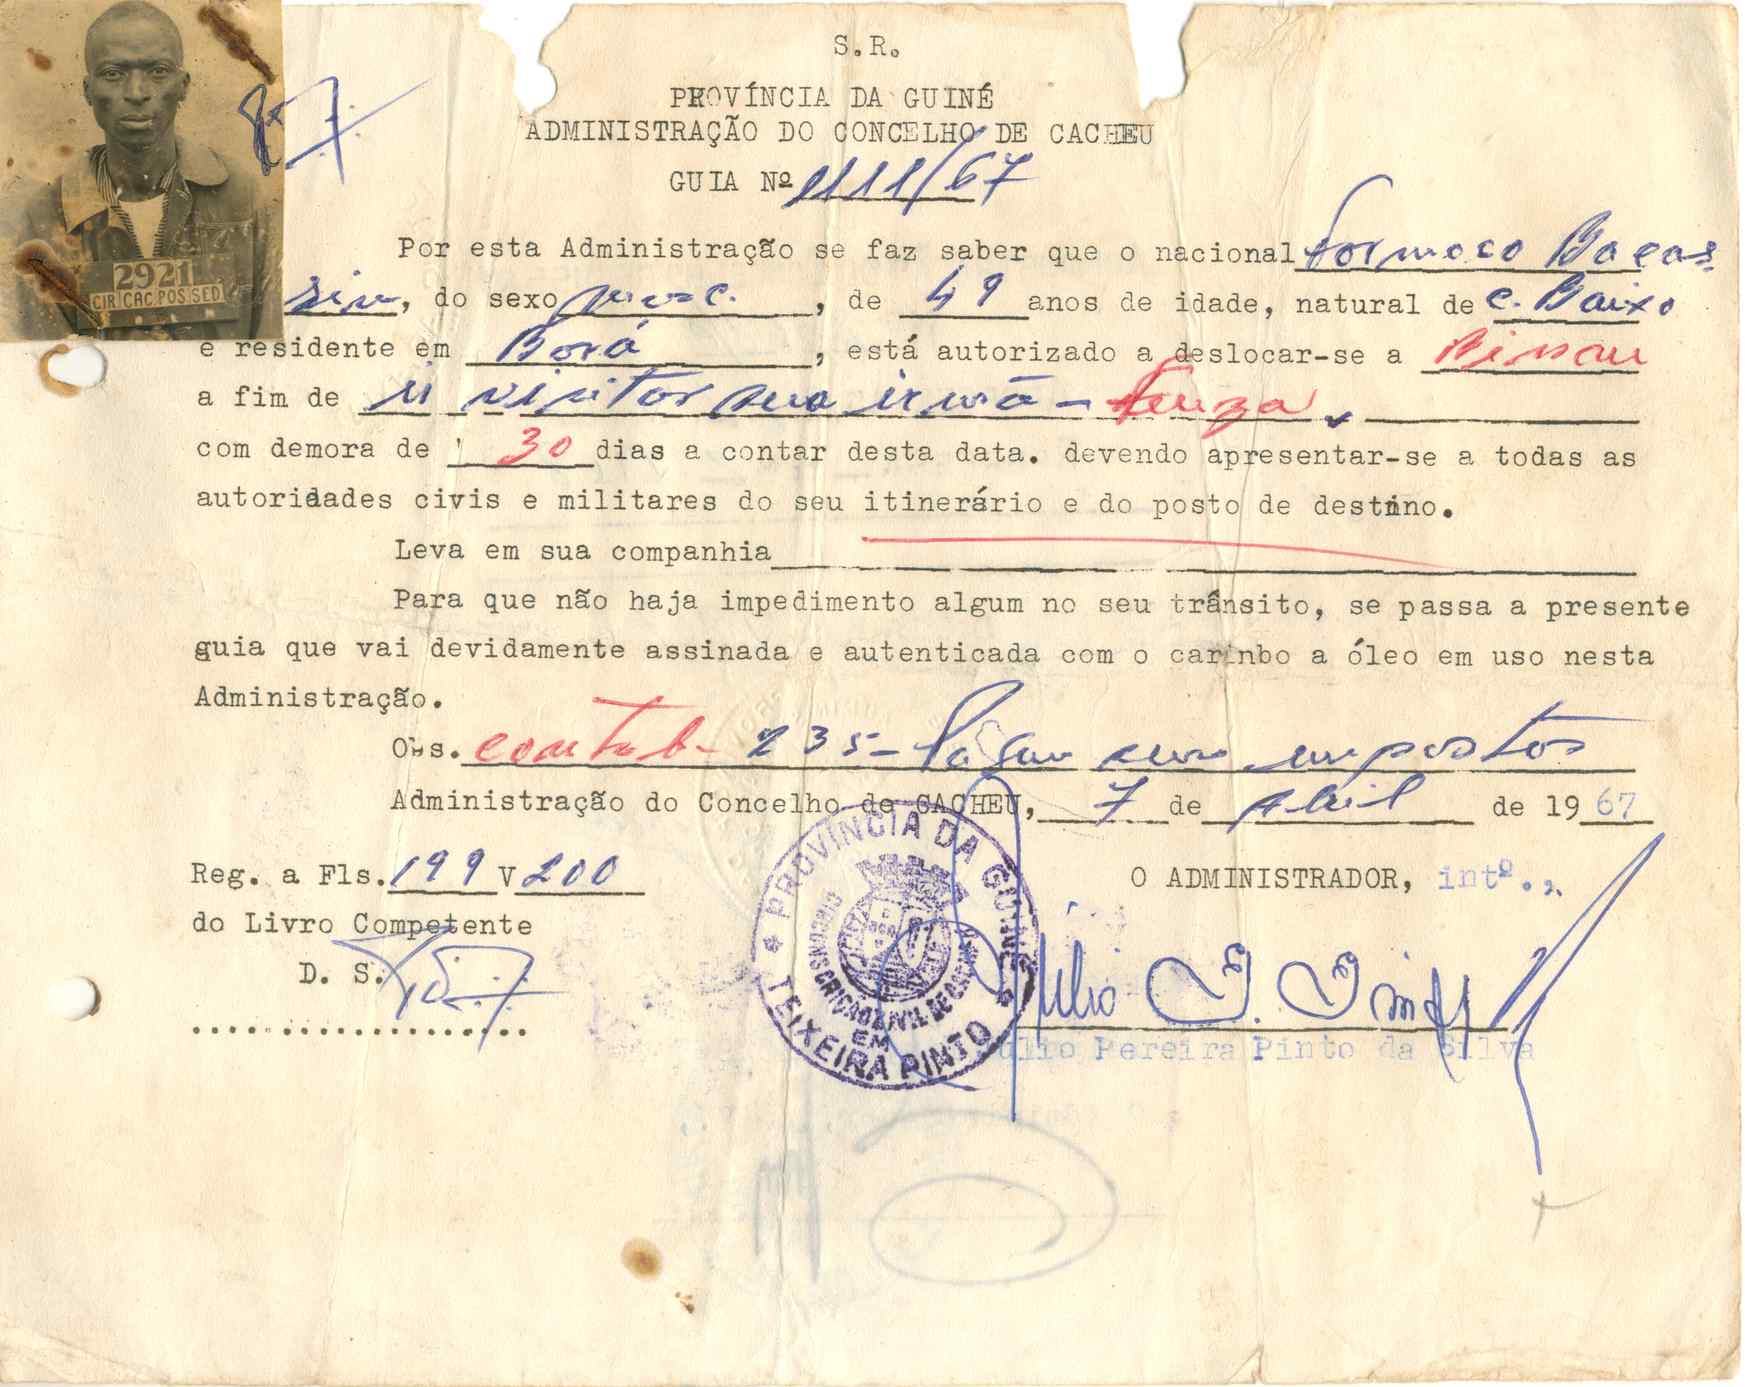 S.R.
PROVÍNCIA DA GUINÉ
ADMINISTRAÇÃO DO CONCELHO DE CACHEU
GUIA Nº 1111/67
2921
CIR CAC POS SED
Por esta Administração se faz saber que o nacional Formoso Bacas-
sim, do sexo masc. , de 49 anos de idade, natural de C. Baixo
e residente em Borá , está autorizado a deslocar-se a Bissau
a fim de ir visitar sua irmã -
com demora de 30 dias a contar desta data. devendo apresentar-se a todas as
autoridades civis e militares do seu itinerário e do posto de destino.
Leva em sua companhia
Para que não haja impedimento algum no seu trânsito, se passa a presente
guia que vai devidamente assinada e autenticada com o carinbo a óleo em uso nesta
Administração.
Obs. 235 - impostos
Administração do Concelho de CACHEU, 7 de Abril de 1967
Reg. a Fls. 199 V 200
O ADMINISTRADOR, intº.,
do Livro Competente
D. S.
PROVÍNCIA DA GUINÉ
CIRCUNSCRIÇÃO CIVIL DE CACHEU
EM
TEIXEIRA PINTO
Júlio
úlio Pereira Pinto da Silva